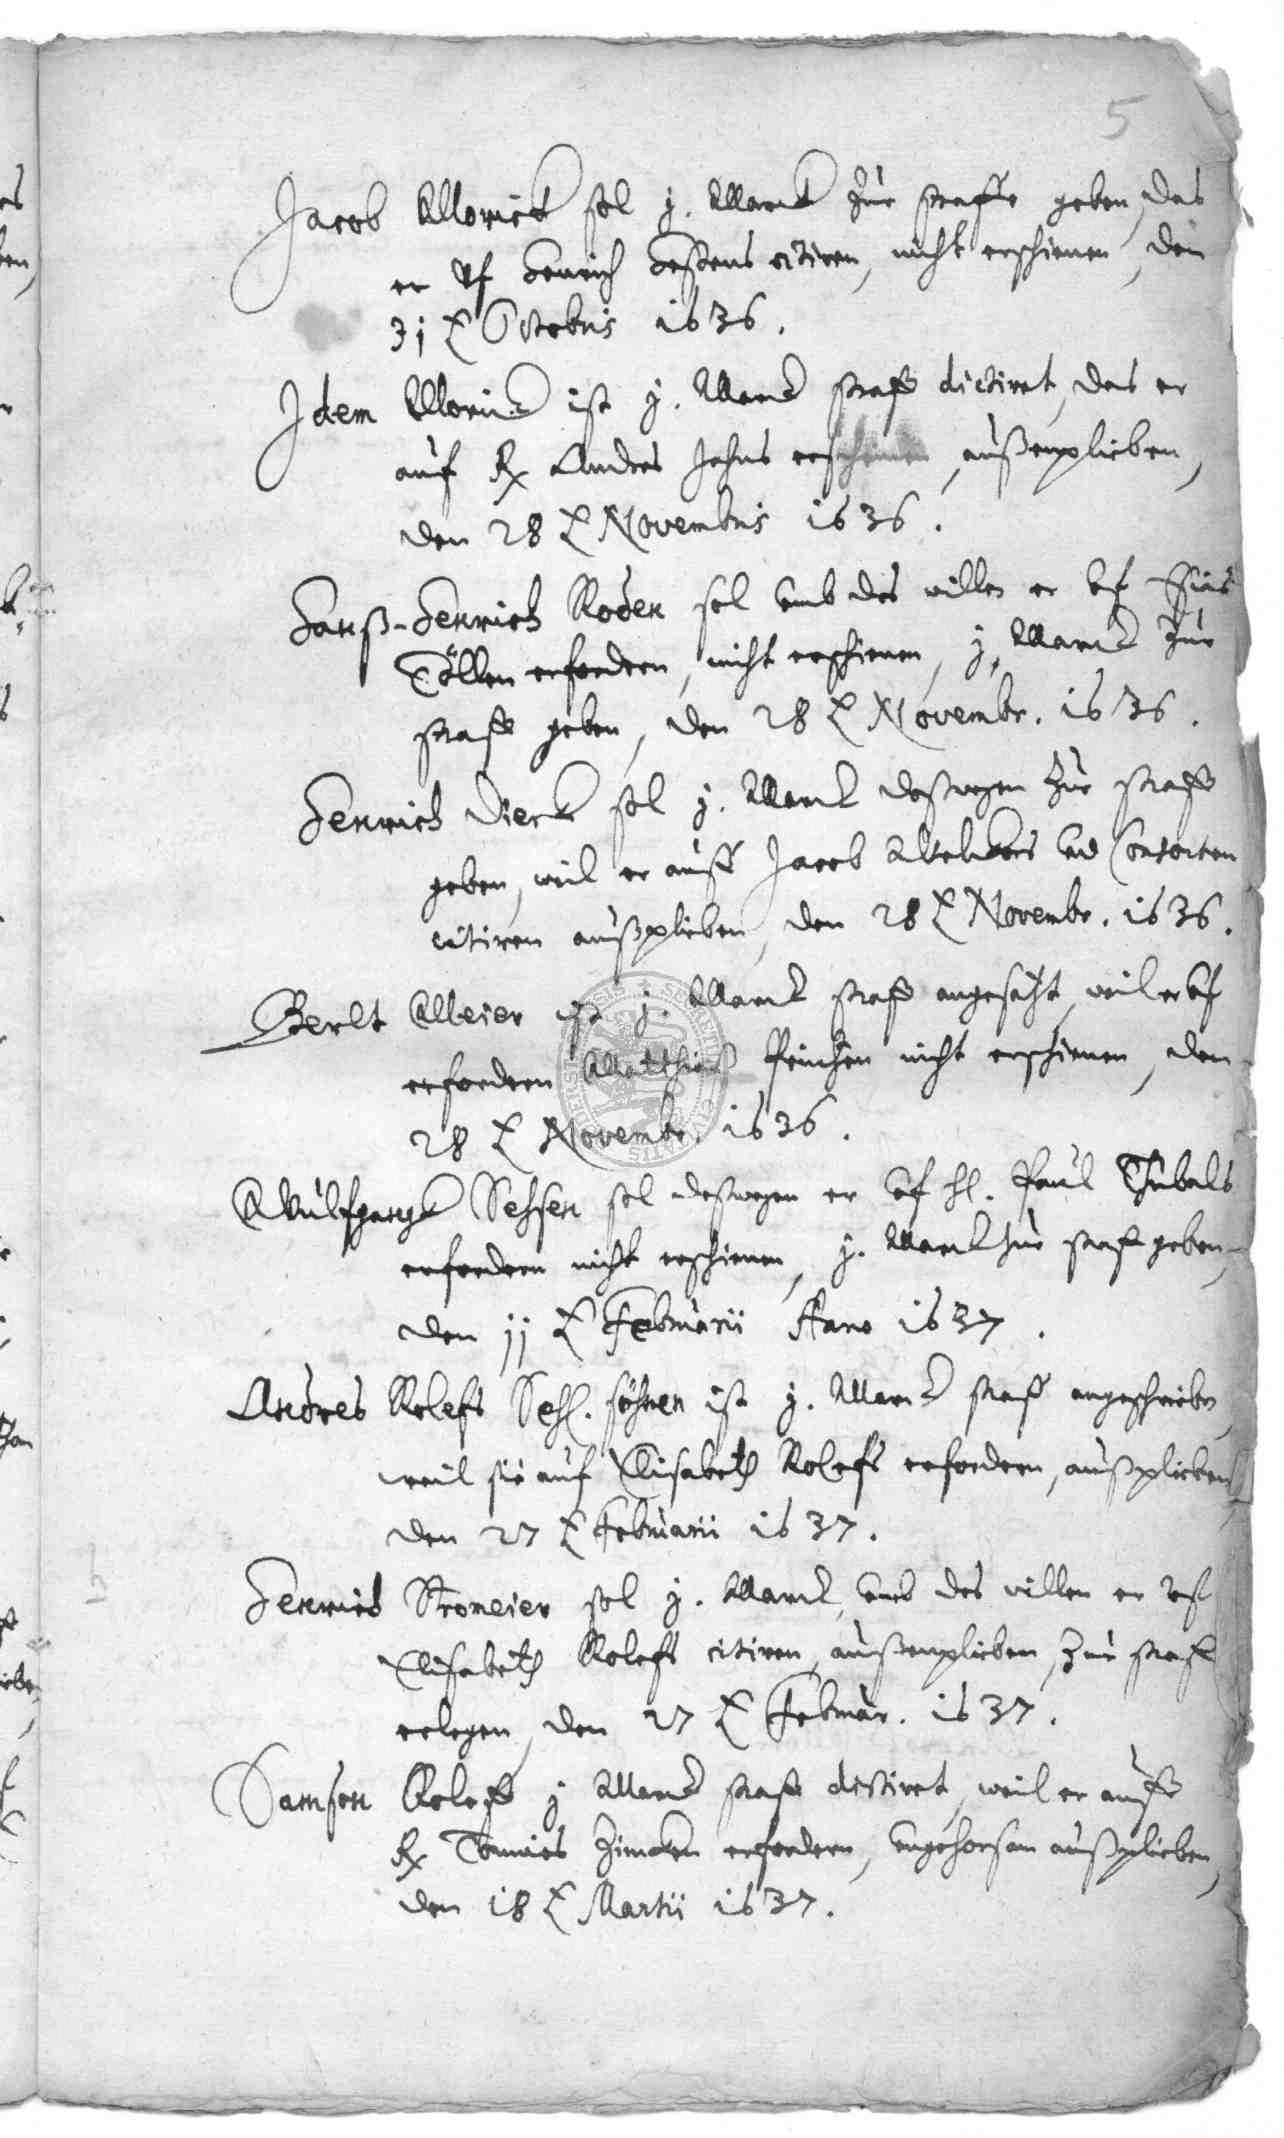 5
Jacob Morick sol j. Marck zur straffe geben, das
er vf Henrich citiren, nicht erschienen, den
31 t Octobris 1636.
Idem Morick ist j. Marck straff dictiret, das er
auf Andres Jahns erscheinen, außenplieben,
den 28 t Novembris 1636.
Hanß-Henrich Roden sol vmb des willen er vf
Töllen erfordern, nicht erschienen, j. Marck zur
straff geben, den 28 t Novembr. 1636.
Henrich Dierck sol j. Marck deßwegen zur straff
geben, weil er auff Jacob vnd Consorten
citiren außplieben, den 28 t Novembr. 1636.
Berlt Meier ist j. Marck straff angesetzt, weil er vf
erfordern Matthias nicht erschienen, den
28 t Novembr. 1636.
Wulfgangk Sehsen sol deßwegen er vf H. Paul Thubals
erfordern nicht erschienen, j. Marck zur straf geben,
den 11 t Februarii Anno 1637.
Andres Rolefs Sehl. söhnen ist j. Marck straff angeschrieben,
weil sie auf Elisabeth Rolefs erfordern, außplieben,
den 27 t Februarii 1637.
Henrich Stromeier sol j. Marck, vmb des willen er vf
Elisabeth Rolefs citiren, außenplieben, zur straff
erlegen, den 27 t Februar. 1637.
Samson Roleff j Marck straff dictiret, weil er auff
Tönnies erfordern, vngehorsam außplieben,
den 18 t Martii 1637.